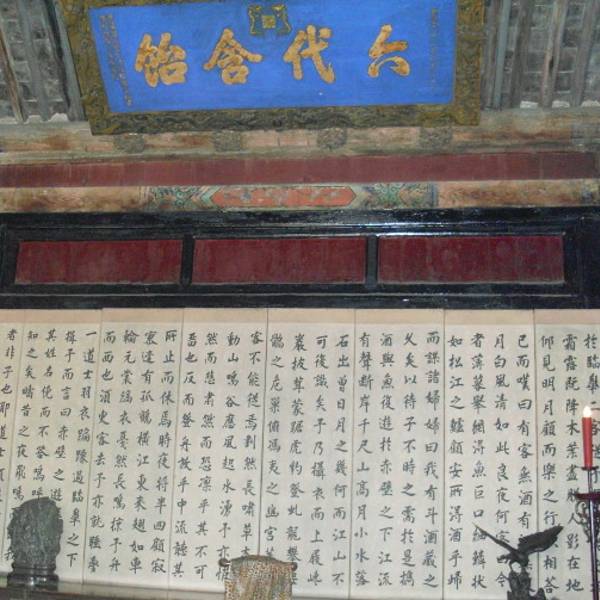 六代含飴
於臨皋
霜露既降木葉盡脫人影在地
仰見明月顧而樂之行歌相答
已而嘆曰有客無酒有
月白風清如此良夜何客曰今
者薄暮舉網得魚巨口細鱗狀
如松江之鱸顧安所得酒乎歸
而謀諸婦婦曰我有斗酒藏之
久矣以待子不時之需於是攜
酒與魚復遊於赤壁之下江流
有聲斷岸千尺山高月小水落
石出曾日月之幾何而江山不
可復識矣予乃攝衣而上履巉
巖披蒙茸踞虎豹登虬龍攀
鶻之危巢俯馮夷之幽宮
客不能從焉劃然長嘯草木
動山鳴谷應風起水湧予亦悄
然而悲肅然而恐凜乎其不可
留也反而登舟放乎中流聽其
所止而休焉時夜將半四顧寂
寥適有孤鶴橫江東來翅如車
輪玄裳縞衣戛然長鳴掠予舟
而西也須臾客去予亦就睡夢
一道士羽衣蹁躚過臨皋之下
揖予而言曰赤壁之遊
其姓名俛而不答嗚呼
知之矣疇昔之夜飛鳴
者非子也耶道士顧